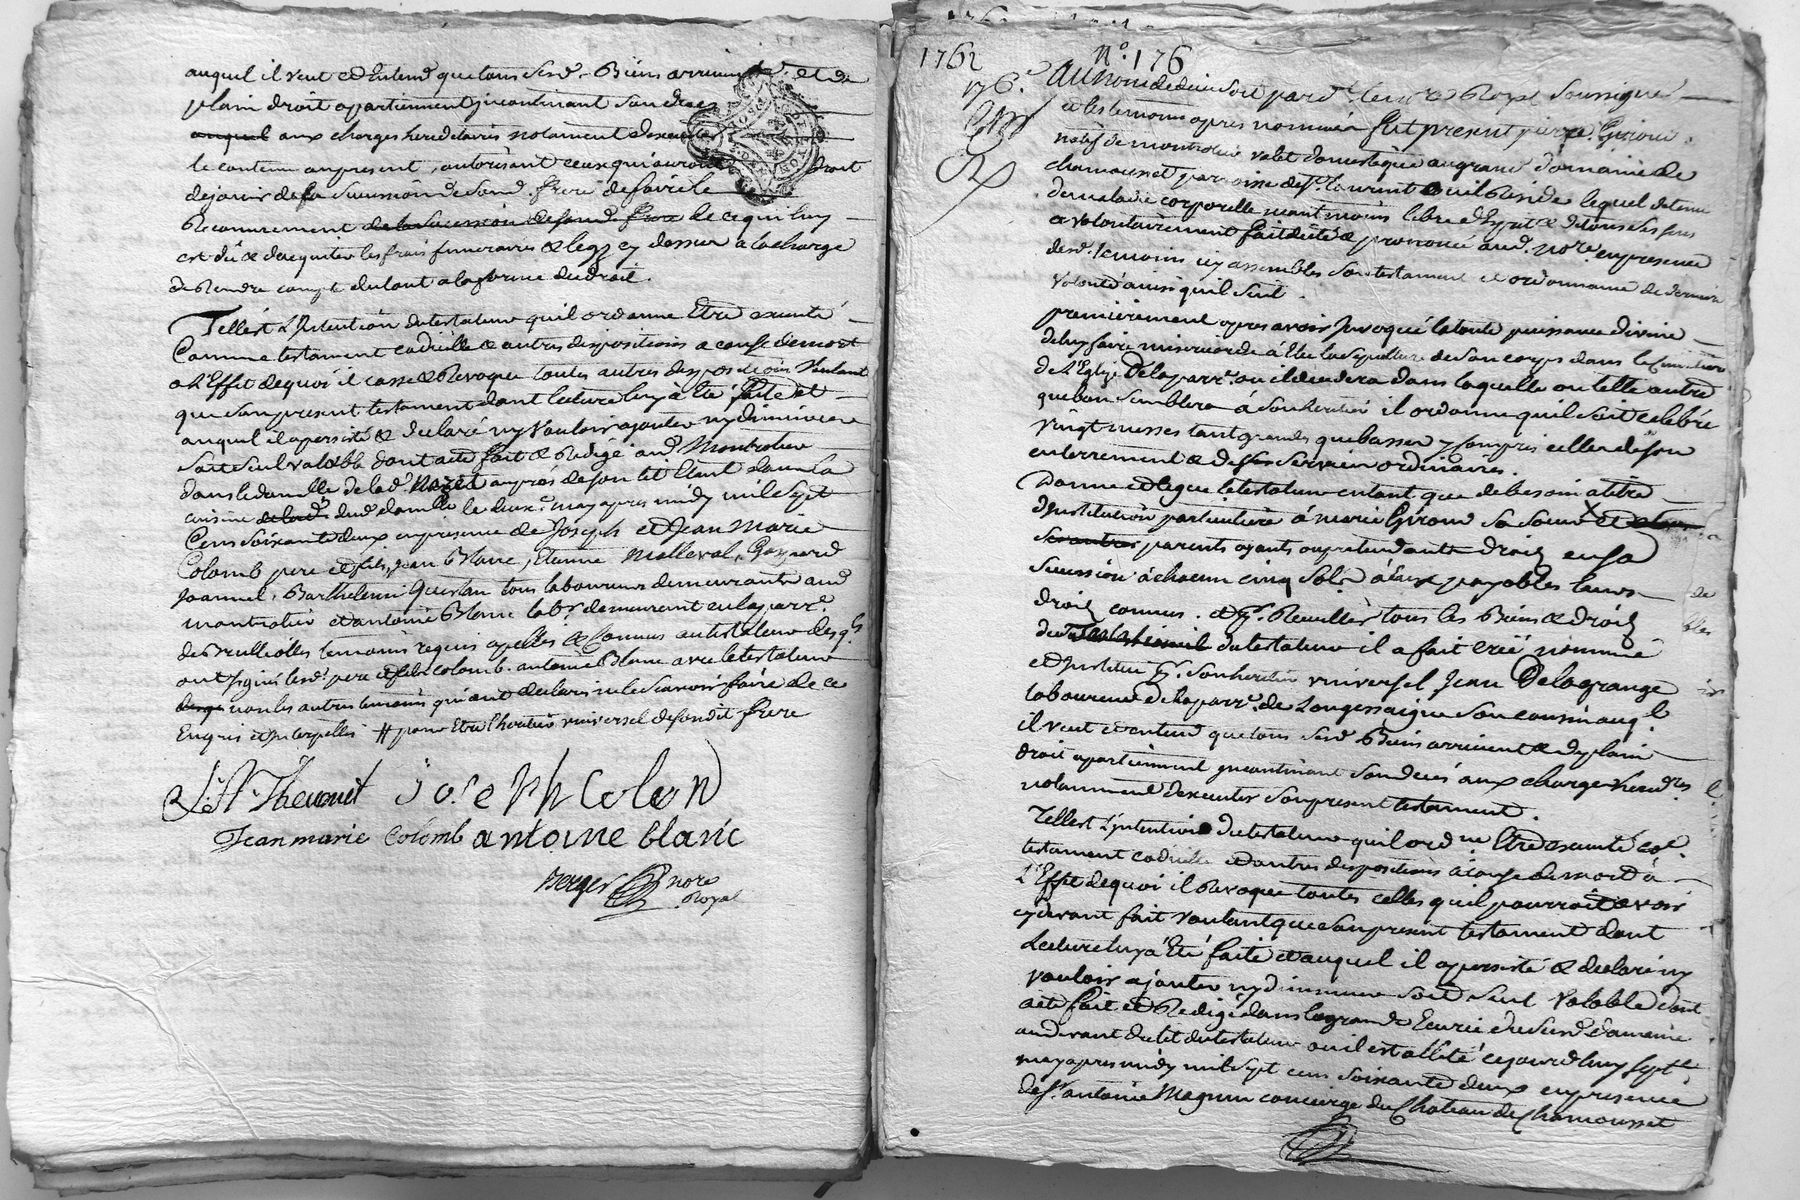 auquel il veut et entend que tous sesd. Biens arrivent et de
plain droit apartiennent incontinant son deces
auquel aux charges hereditaires notament dexecuter
le contenu au present, autorisant ceux qui auront droit
de jouir de la sucession de sond. frere de faire le
Recouvrement de la sucession de sond. frere de ce qui luy
est dû & dacquiter les frais funeraires & legs cy dessus a la charge
de Rendre compte du tout a la forme du droit.
Tell'est L'Intention du testateur qu'il ordonne Etre executé
Comme testament codicille & autres dispositions a cause de mort
a L'Effet de quoi il casse & Revoque toutes autres dispositions Voulant
que son present testament dont lecture luy a été faite et
auquel il a persisté & declaré n'y vouloir ajouter ny diminuer
soit seul valable dont acte fait & Redigé aud. Montrotier
dans le domicille de lad. Mazet auprés de son lit Etant dans la
cuisine de lad. dud. domicille le deux.e may apres midy mil sept
Cens soixante deux en presence de Joseph et Jean Marie
Colomb pere et fils, jean Blanc, Etienne Malleval, Gaspard
Joannel, Barthelemi Guestan tous laboureurs demeurants aud.
montrotier et antoine Blanc lab.r demeurant en la parr.e
de Brulliolles temoins requis apellés & Connus au testateur desq.ls
ont signé lesd. pere et fils colomb. antoine Blanc avec le testateur
non les autres temoins qui ont declaré ne le scavoir faire de ce
Enquis et Interpellés # pour Etre l'heritier universel de sondit frere
Joseph Colon
Jean marie Colomb antoine blanc
Berger nore
Royal
1762
N.o 176
176.e
Au nom de dieu soit pard. le no.re Royal soussigné
et les temoins apres nommés fut present pierre Giroud
natif de montrotier valet domestique au grand domaine de
chamousset parroisse de S.t laurent ou il Reside lequel detenu
de maladie corporelle neantmoins libre d'Esprit & de tous ses sens
a volontairement fait dicté & prononcé aud. no.re en presence
desd. temoins icy assemblés son testament et ordonnance de derniere
volonté ainsi quil suit.
premierement apres avoir Invoqué la toute puissance divine
de luy faire misericorde a Elu la sepulture de son corps dans le Cimetiere
de L'Eglize De la parr.e ou il decedera dans laquelle ou telle autre
que bon semblera á son heritier il ordonne quil soit celebré
vingt messes tant grandes que basses y compris celles de son
enterrement & de ses services ordinaires.
Donne et legue le testateur en tant que de besoin a titre
d'institution particuliere á marie Giroud sa soeur
parents ayants ou pretendants droits en sa
sucession á chacun cinq sols á eux payables leurs
droits connus. et p.r Recueillir tous les Biens & droits
du testateur il a fait créé nommé
et Institué p.r son heritier universel Jean Delagrange
laboureur de la parr.e de Longessaigne son cousin auq.l
il veut et entend que tous sesd. Biens arrivent & de plain
droit apartiennent incontinant son deces aux charges hered.res
notamment dexecuter son present testament.
Tell'est L'intention du testateur quil ordonne Etre executé co.e
testament codicille et autres dispositions á cause de mort á
L'Effet de quoi il Revoque toutes celles quil pourroit avoir
cy devant fait voulant que son present testament dont
Lecture luy a Eté faite et auquel il a persisté & declaré ny
vouloir ajouter ny diminuer soit seul valable dont
acte fait et Redigé dans la grande Ecurie du susd. domaine
au devant du lit du testateur ou il est allité cejourdhuy sept.e
may apres midy mil sept cens soixante deux en presence
de S.r antoine Magnin concierge du Chateau de Chamousset